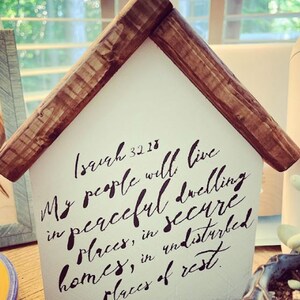 Isaiah 32:18
My people will live
in peaceful dwelling
places, in secure
homes, in undisturbed
places of rest.